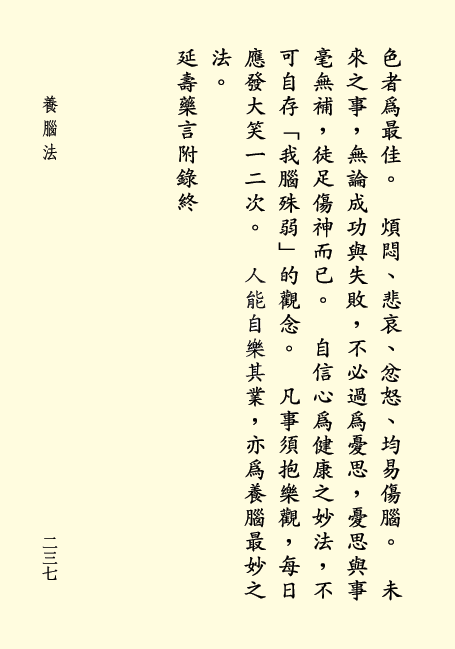 色者爲最佳。　煩悶、悲哀、忿怒、均易傷腦。　未
來之事，無論成功與失敗，不必過爲憂思，憂思與事
毫無補，徒足傷神而已。　自信心爲健康之妙法，不
可自存「我腦殊弱」的觀念。　凡事須抱樂觀，每日
應發大笑一二次。　人能自樂其業，亦爲養腦最妙之
法。
延壽藥言附錄終
養腦法
二三七